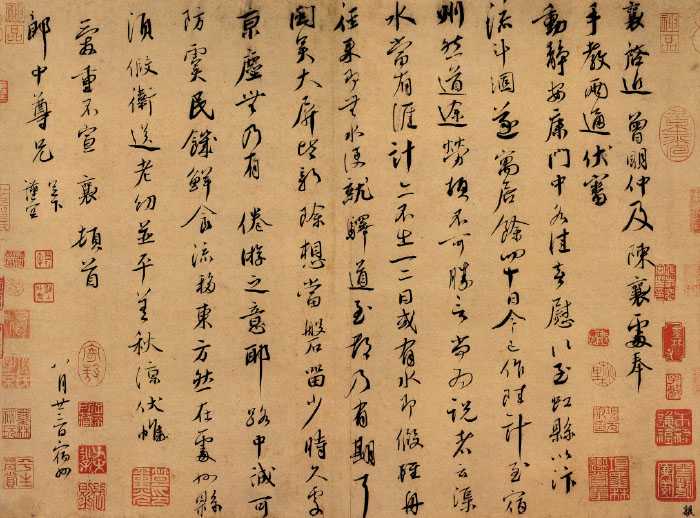 襄啓近曾明仲及陳襄處奉
手教兩通伏審
動靜安康門中各佳喜慰至虹縣以汴
流斗涸遂寓居餘四十日今已作陸計至宿
州然道途勞頓不可勝言尚為說者云渠
水當有涯計亦不出一二日或有水即假輕舟
徑来即無水便就驛道至都乃有期耳
聞大屏皆新除想當盤留少時久處
京塵無乃有倦游之意耶路中誠可
防民饑鮮食流移東方然在處州縣
須假衛送老幼並平善秋涼伏惟
愛重不宣襄頓首
郎中尊兄
足下
謹空
八月廿三日宿州